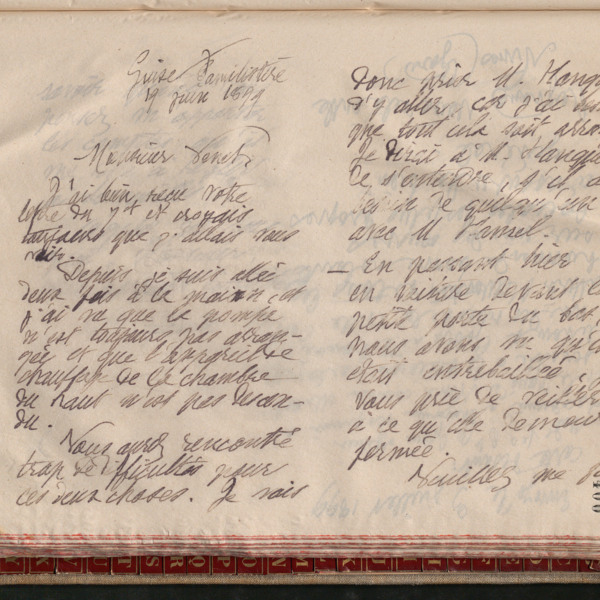 Guise Familistère
9 juin 1899
Monsieur
J'ai bien reçu votre
lettre du 7 et et croyais
toujours que j'allais vous
voir.
Depuis je suis allé
deux fois à la maison, et
j'ai vu que la pompe
n'est toujours pas arran-
gée et que l'appareil de
chauffage de la chambre
du haut n'est pas descen-
du.
Vous avez rencontré
trop de difficultés pour
ces deux choses. Je vais
donc prier M.
d'y aller, car j'ai
que tout cela soit
Je dirai à M.
de s'entendre, s'il a
besoin de quelqu'un
avec M Hamel.
— En passant hier
en voiture devant la
petite porte du bas,
nous avons vu qu'elle
était entrebaillée,
vous prie de veiller
à ce qu'elle demeure
fermée.
Veuillez me